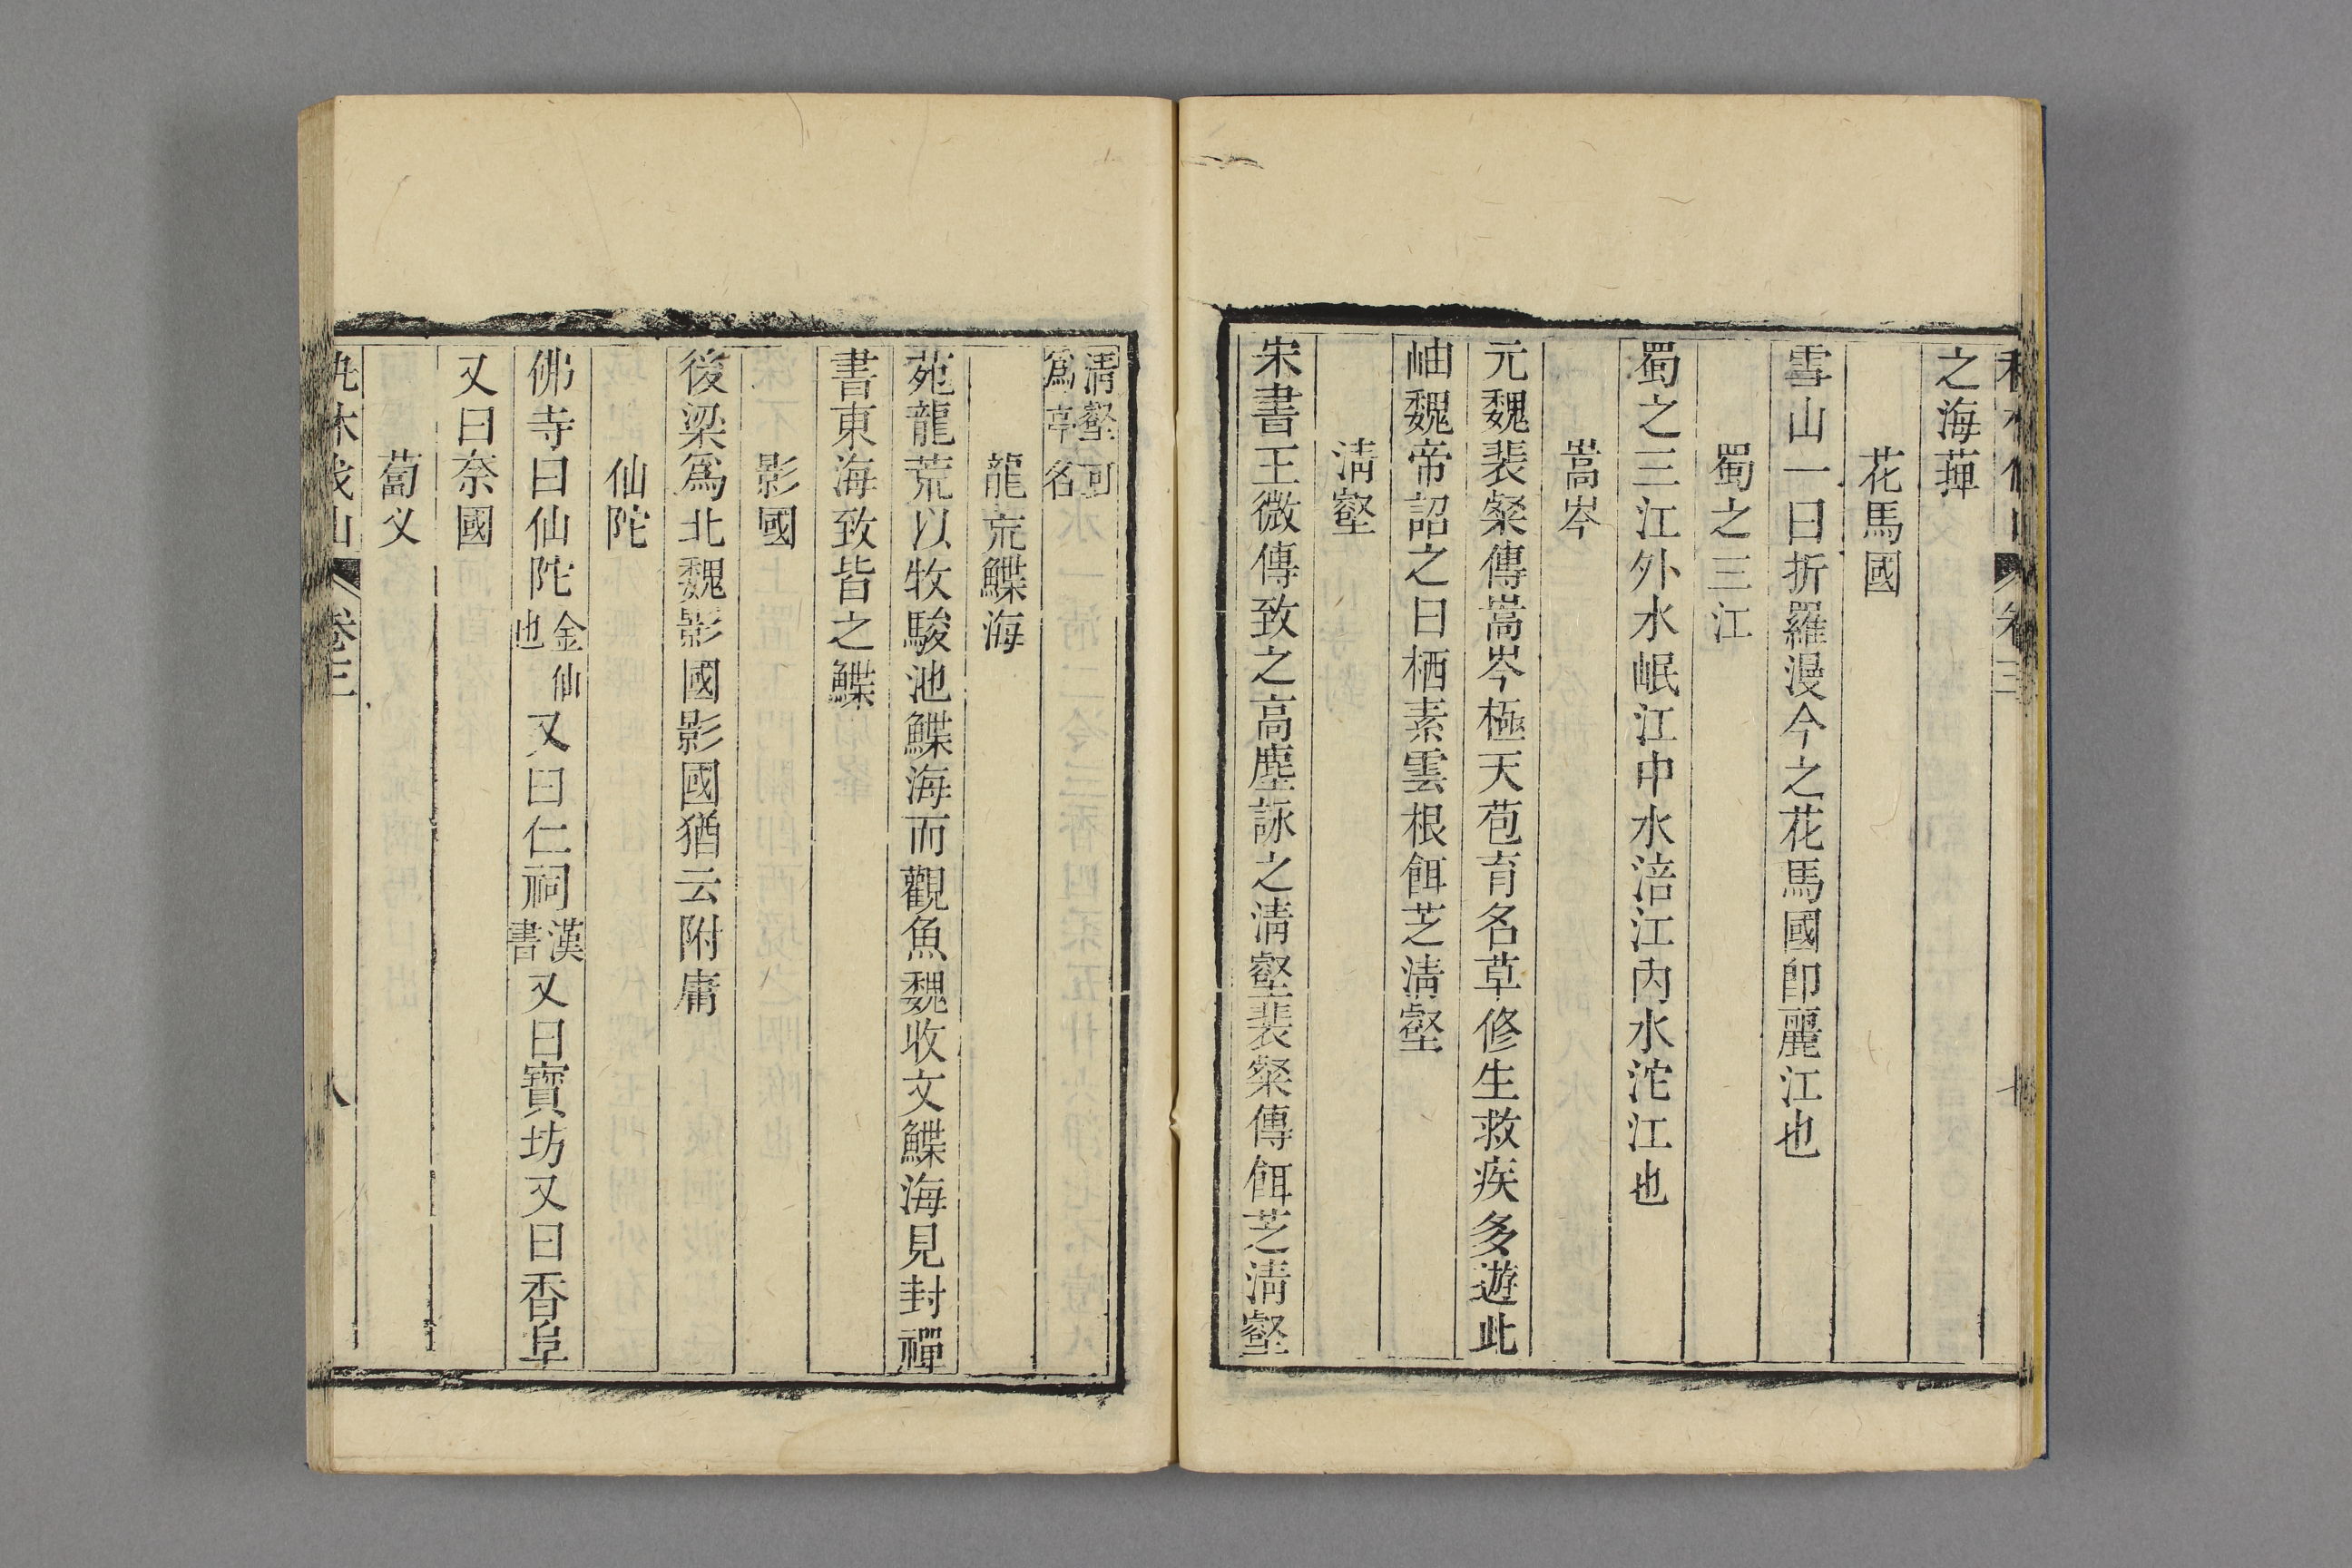 之海葏
花馬國
雪山一曰折羅漫今之花馬國卽麗江也
蜀之三江
蜀之三江外水岷江中水涪江內水沱江也
嵩岑
元魏裴粲傳嵩岑極天苞育名草修生救疾多遊此
岫魏帝詔之曰栖素雲根餌芝清壑
清壑
宋書王微傳致之高塵詠之清壑裴粲傳餌芝清壑
清壑可
為亭名
龍荒鰈海
苑龍荒以牧駿池鰈海而觀魚魏收文鰈海見封禪
書東海致皆之鰈
影國
後梁為北魏影國影國猶云附庸
仙陀
佛寺曰仙陀金仙也又曰仁祠漢書又曰寶坊又曰香阜
又曰奈國
蔔义
卷三
八